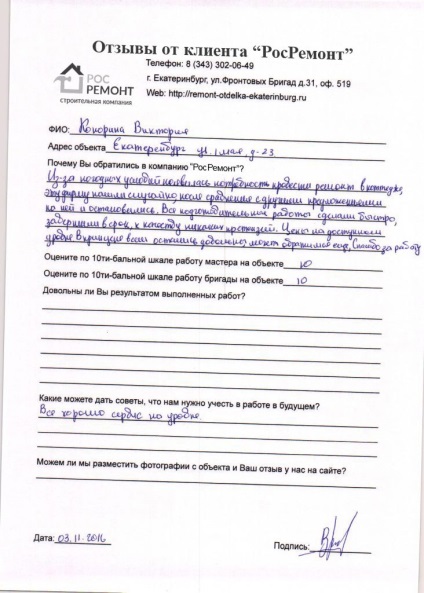 Отзывы от клиента “РосРемонт”
Телефон: 8 (343) 302-06-49
г. Екатеринбург, ул.Фронтовых Бригад д.31, оф. 519
Web: http://remont-otdelka-ekaterinburg.ru
РОС
РЕМОНТ
строительная компания
ФИО: Кокорина Виктория
Адрес объекта Екатеренбург ул. 1 мая, д-23
Почему Вы обратились в компанию "РосРемонт"?
Из-за погодных условий появилась потребность провести ремонт в коттедже,
эту фирму нашли случайно после сравнения с другими предложениями
на ней и остановились. Все подготовительные работы сделали быстро,
завершили в срок, к качеству никаких претензий. Цены на доступном
уровне в принципе всем остались довольны, может обратимся еще, Спасибо за работу
Оцените по 10ти-бальной шкале работу мастера на объекте 10
Оцените по 10ти-бальной шкале работу бригады на объекте 10
Довольны ли Вы результатом выполненных работ?
Какие можете дать советы, что нам нужно учесть в работе в будущем?
Все хорошо сервис на уровне.
Можем ли мы разместить фотографии с объекта и Ваш отзыв у нас на сайте?
Дата: 03.11.2016
Подпись: